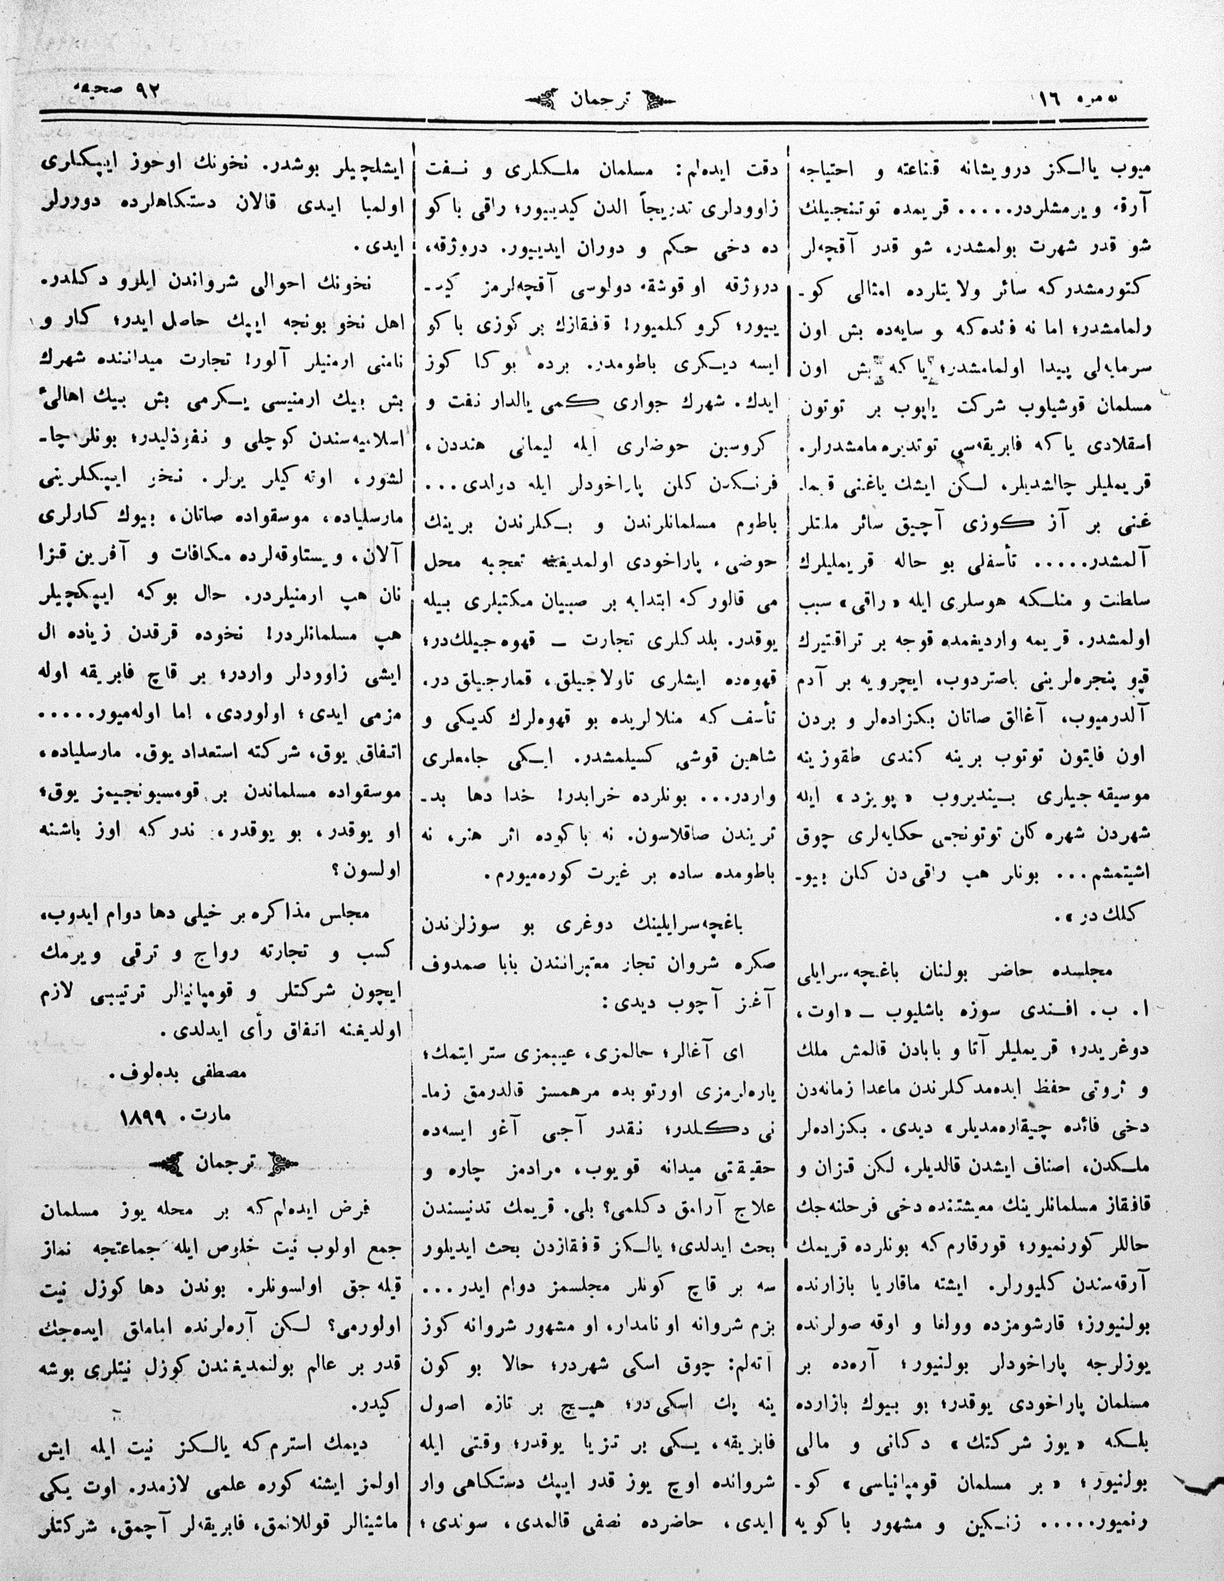 نومره ١٦
ترجمان
٩٢ صحیفه
میوب یالـکز درویشانه قناعته و احتیاجه
آرقه ویرمشلردر..... قریمده توتنجیلك
شو قدر شهرت بولمشدر، شو قدر آقچه‌لر
کتورمشدرکه سائر ولایتلرده امثالی کو۔
رلمامشدر؛ اما نه فائده‌که و سایه‌ده بش اون
سرمایه‌لی پیدا اولمامشدر؛ یاکه بش اون
مسلمان قوشیلوب شرکت یاپوب بر توتون
اسقلادی یاکه فابریقه‌سی توتدیره‌مامشدرلر.
قریملیلر چالشدیلر، لـکن ایشك یاغنی قیما۔
غنی بر آز کـوزی آچیق سائر ملتلر
آلمشدر..... تأسفلی بو حاله قریملیلرك
سلطنت و منلـکه هوسلری ایله «راقی» سبب
اولمشدر. قریمه واردیغمده قوجه بر تراقتیرك
قپو پنجره‌لرینی باصتردوب، ایچرویه بر آدم
آلدرمیوب، آغالق صاتان بکزاده‌لر و بردن
اون فایتون توتوب برینه کندی طقوزینه
موسیقه‌جیلری بـیندیروب «پویزد» ایله
شهردن شهره کلن توتونجی حکایه‌لری چوق
اشیتمشم... بونلر هپ راقی‌دن کلن بیو۔
کلك‌در».
مجلسده حاضر بولنان باغچه‌سرایلی
ا. ب. افـندی سوزه باشلیوب ــ «اوت،
دوغریدر؛ قریملیلر آتا و بابادن قالمش ملك
و ثروتی حفظ ایده‌مدکلرندن ماعدا زمانه‌دن
دخی فائده چیقاره‌مدیلر» دیدی. بکزاده‌لر
ملـکدن، اصناف ایشدن قالدیلر، لکن قزان و
قافقاز مسلمانلرینك معیشتنده دخی فرحلنه‌جك
حاللر کورنمیور؛ قورقارم‌که بونلرده قریمك
آرقه‌سندن کلمیورلر. ایشته ماقاریا بازارنده
بولنیورز؛ قارشومزده وولغا و اوقه صولرنده
یوزلرجه پاراخودلر بولنیور؛ آره‌ده بر
مسلمان پاراخودی یوقدر؛ بو بیوك بازارده
بلـکه «یوز شرکتك» دکانی و مالی
بولنیور؛ «بر مسلمان قومپانیاسی» کو۔
رنمیور..... زنـکین و مشهور باکویه
دقت ایده‌لم: مسلمان ملـکلری و نـفت
زاوودلری تدریجاً الدن کیدییور؛ راقی باکو
ده دخی حکم و دوران ایدییور. دروژقه،
دروژقه اوقوشقه دولوسی آقچه‌لرمز کیـ
یییور؛ کرو کلمیور! قفقازك بر کوزی باکو
ایسه دیـکری باطومدر. برده بوکا کوز
ایدك. شهرك جواری کـمی یالدار نفت و
کروسین حوضلری ایله لیمانی هنددن،
فرنـکدن کلن پاراخودلر ایله دولدی...
باطوم مسلمانلرندن و بـکلرندن برینك
حوضی، پاراخودی اولمدیغنه تعجبه محل
می قالورکه ابتدایه بر صبیان مکتبلری بیله
یوقدر. بلدکلری تجارت ــ قهوه‌جیلك‌در؛
قهوه‌ده ایشلری تاولاجیلق، قمارجیلق‌در.
تأسف که منلالریده بو قهوه‌لرك کدیکی و
شاهین قوشی کسیلمشدر. ایـکی جامعلری
واردر... بونلرده خرابدر! خدا دها بد۔
تریندن صاقلاسون. نه باکوده اثر هنر، نه
باطومده ساده بر غیرت کوره‌میورم.
باغچه‌سرایلینك دوغری بو سوزلرندن
صکره شروان تجار معتبرانندن بابا صمدوف
آغز آچوب دیدی:
ای آغالر؛ حالمزی، عیبمزی ستر ایتمك؛
یاره‌لرمزی اورتوبده مرهمسز قالدرمق زما۔
نی دکـلدر؛ نقدر آجی آغو ایسه‌ده
حقیقتی میدانه قویوب، مرادمز چاره و
علاج آرامق دکلمی؟ بلی. قریمك تدنیسندن
بحث ایدلدی؛ یالـکز قفقازدن بحث ایدیلور
سه بر قاچ کونلر مجلسمز دوام ایدر...
بزم شروانه او نامدار، او مشهور شروانه کوز
آته‌لم: چوق اسکی شهردر؛ حالا بو کون
ینه پك اسکی‌در؛ هیـچ بر تازه اصول
فابریقه، یـکی بر تزیا یوقدر؛ وقتی ایله
شروانده اوچ یوز قدر ایپك دستکاهی وار
ایدی، حاضرده نصفی قالمدی، سوندی؛
ایشلچیلر بوشدر. نخونك اوحوز ایپکلری
اولمیا ایدی قالان دستکاهلرده دوررلر
ایدی.
نخونك احوالی شرواندن ایلرو دکلدر.
اهل نخو بونجه ایپك حاصل ایدر؛ کار و
نامنی ارمنیلر آلور! تجارت میداننده شهرك
بش بیك ارمنیسی یـکرمی بش بیك اهالئ
اسلامیه‌سندن کوچلی و نفوذلیدر؛ بونلر چا۔
لشور، اوته‌کیلر یرلر. نخو ایپـکلرینی
مارسلیاده، موسقواده صاتان، بیوك کارلری
آلان، ویستاوقه‌لرده مکافات و آفرین قزا
نان هپ ارمنیلردر. حال بوکه ایپکچیلر
هپ مسلمانلردر! نخوده قرقدن زیاده ال
ایشی زاوودلر واردر؛ بر قاچ فابریقه اوله
مزمی ایدی؛ اولوردی، اما اوله‌میور.....
اتفاق یوق، شرکته استعداد یوق. مارسلیاده،
موسقواده مسلماندن بر قومسیونجیمز یوق؛
او یوقدر، بو یوقدر، ندرکه اوز باشنه
اولسون؟
مجلس مذاکره بر خیلی دها دوام ایدوب،
کسب و تجارته رواج و ترقی ویرمك
ایچون شرکتلر و قومپانیالر ترتیبی لازم
اولدیغنه اتفاق رأی ایدلدی.
مصطفی بده‌لوف.
مارت. ١٨٩٩
ترجمان
فرض ایده‌لم‌که بر محله یوز مسلمان
جمع اولوب نیت خلوص ایله جماعتجه نماز
قیله جق اولسونلر. بوندن دها کوزل نیت
اولورمی؟ لـکن آره‌لرنده اماملق ایده‌جك
قدر بر عالم بولنمدیغندن کوزل نیتلری بوشه
کیدر.
دیمك استرم‌که یالـکز نیت ایله ایش
اولمز ایشنه کوره علمی لازمدر. اوت یکی
ماشینالر قوللانمق، فابریقه‌لر آچمق، شرکتلر